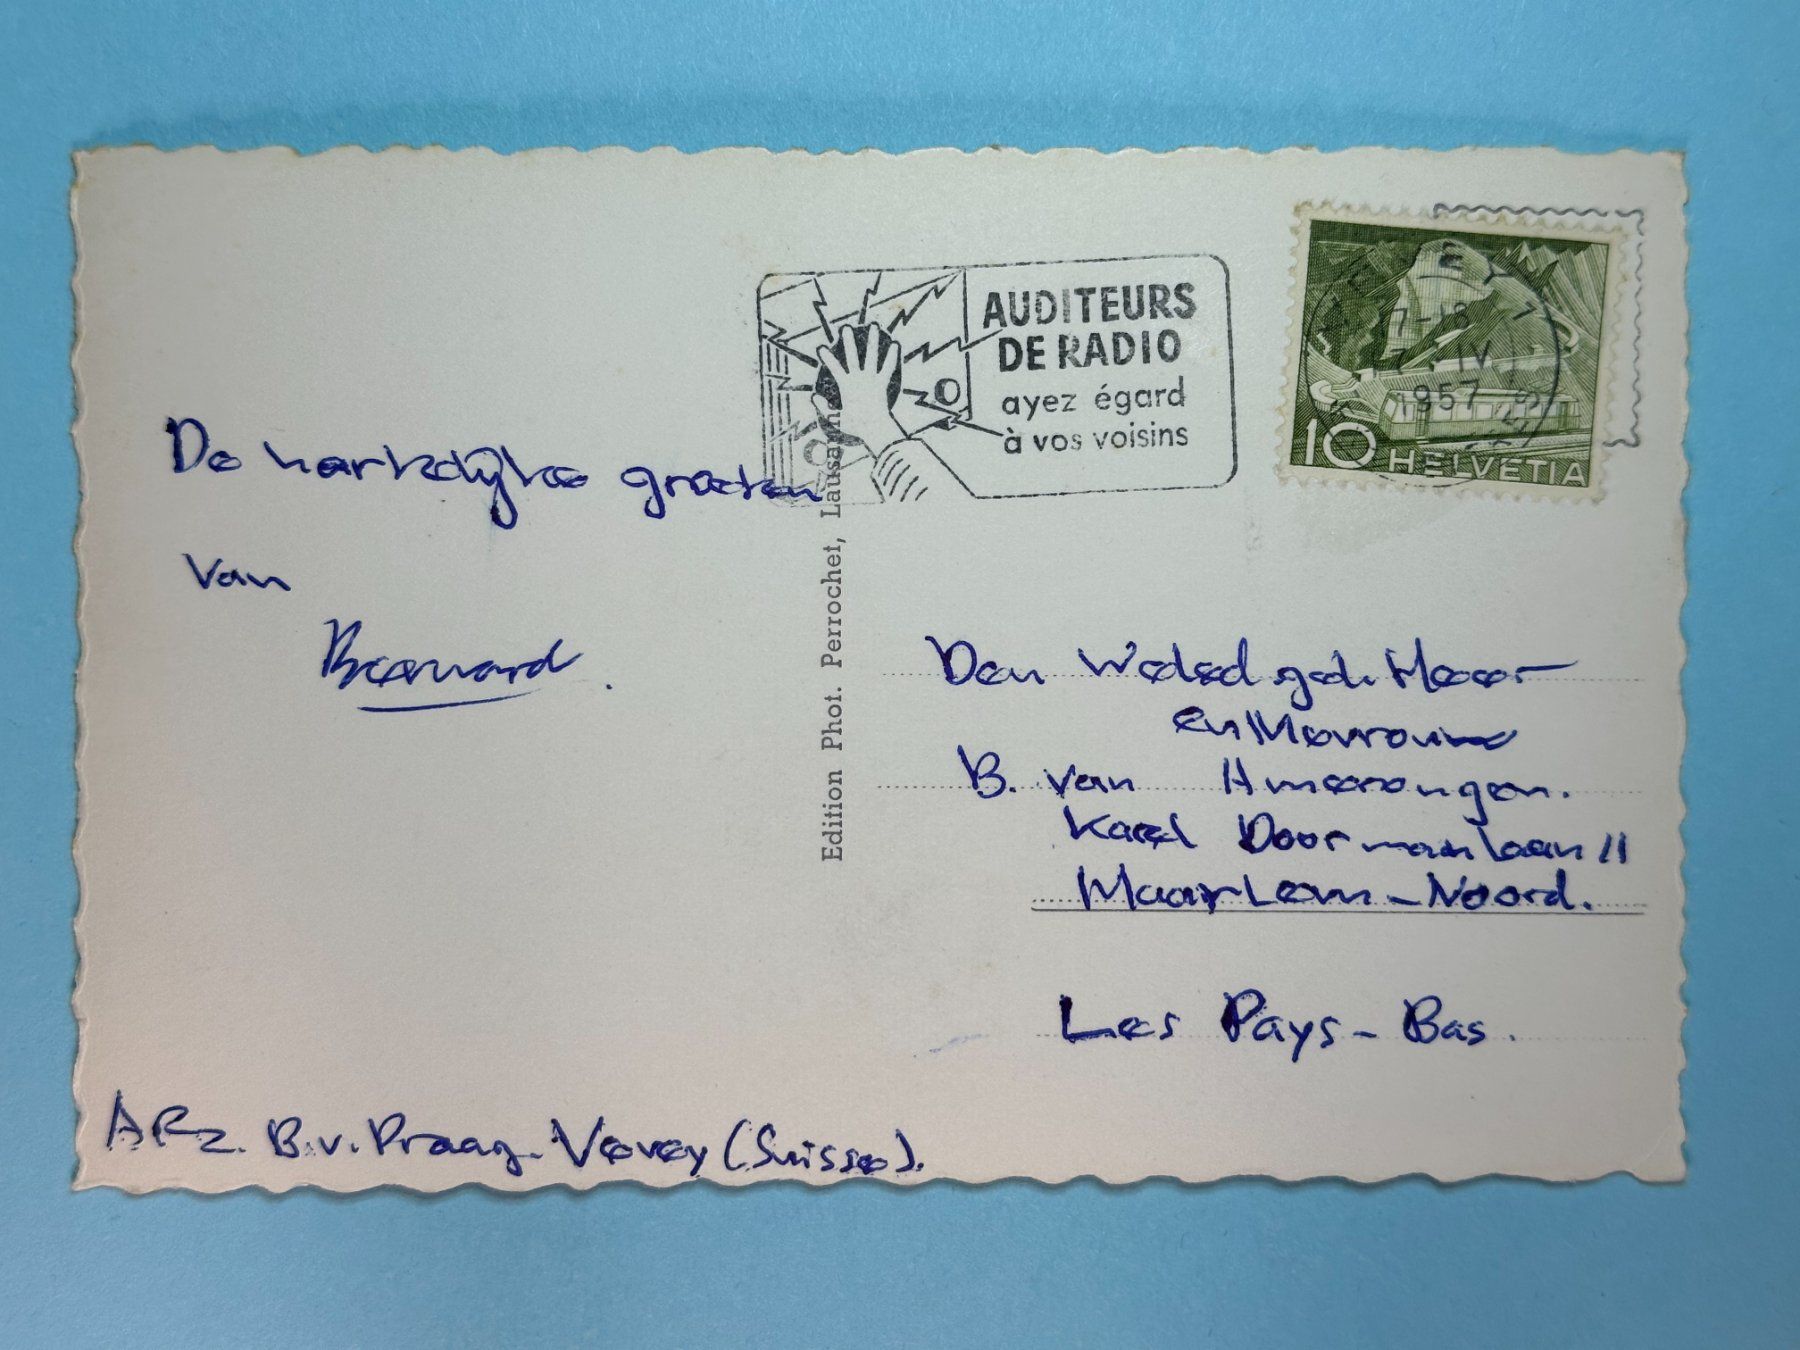 AUDITEURS
DE RADIO
ayez égard
à vos voisins
VEVEY 1
17-18
17. IV
1957
10 HELVETIA
De hartelijke groeten
van
Bernard.
Edition Phot. Perrochet, Lausanne
Den Weledel.geb. Heer
en Mevrouw
B. van Amerongen.
Karel Doormanlaan 11
Haarlem-Noord.
Les Pays-Bas.
Afz. B.v.Praag. Vevey (Suisse).